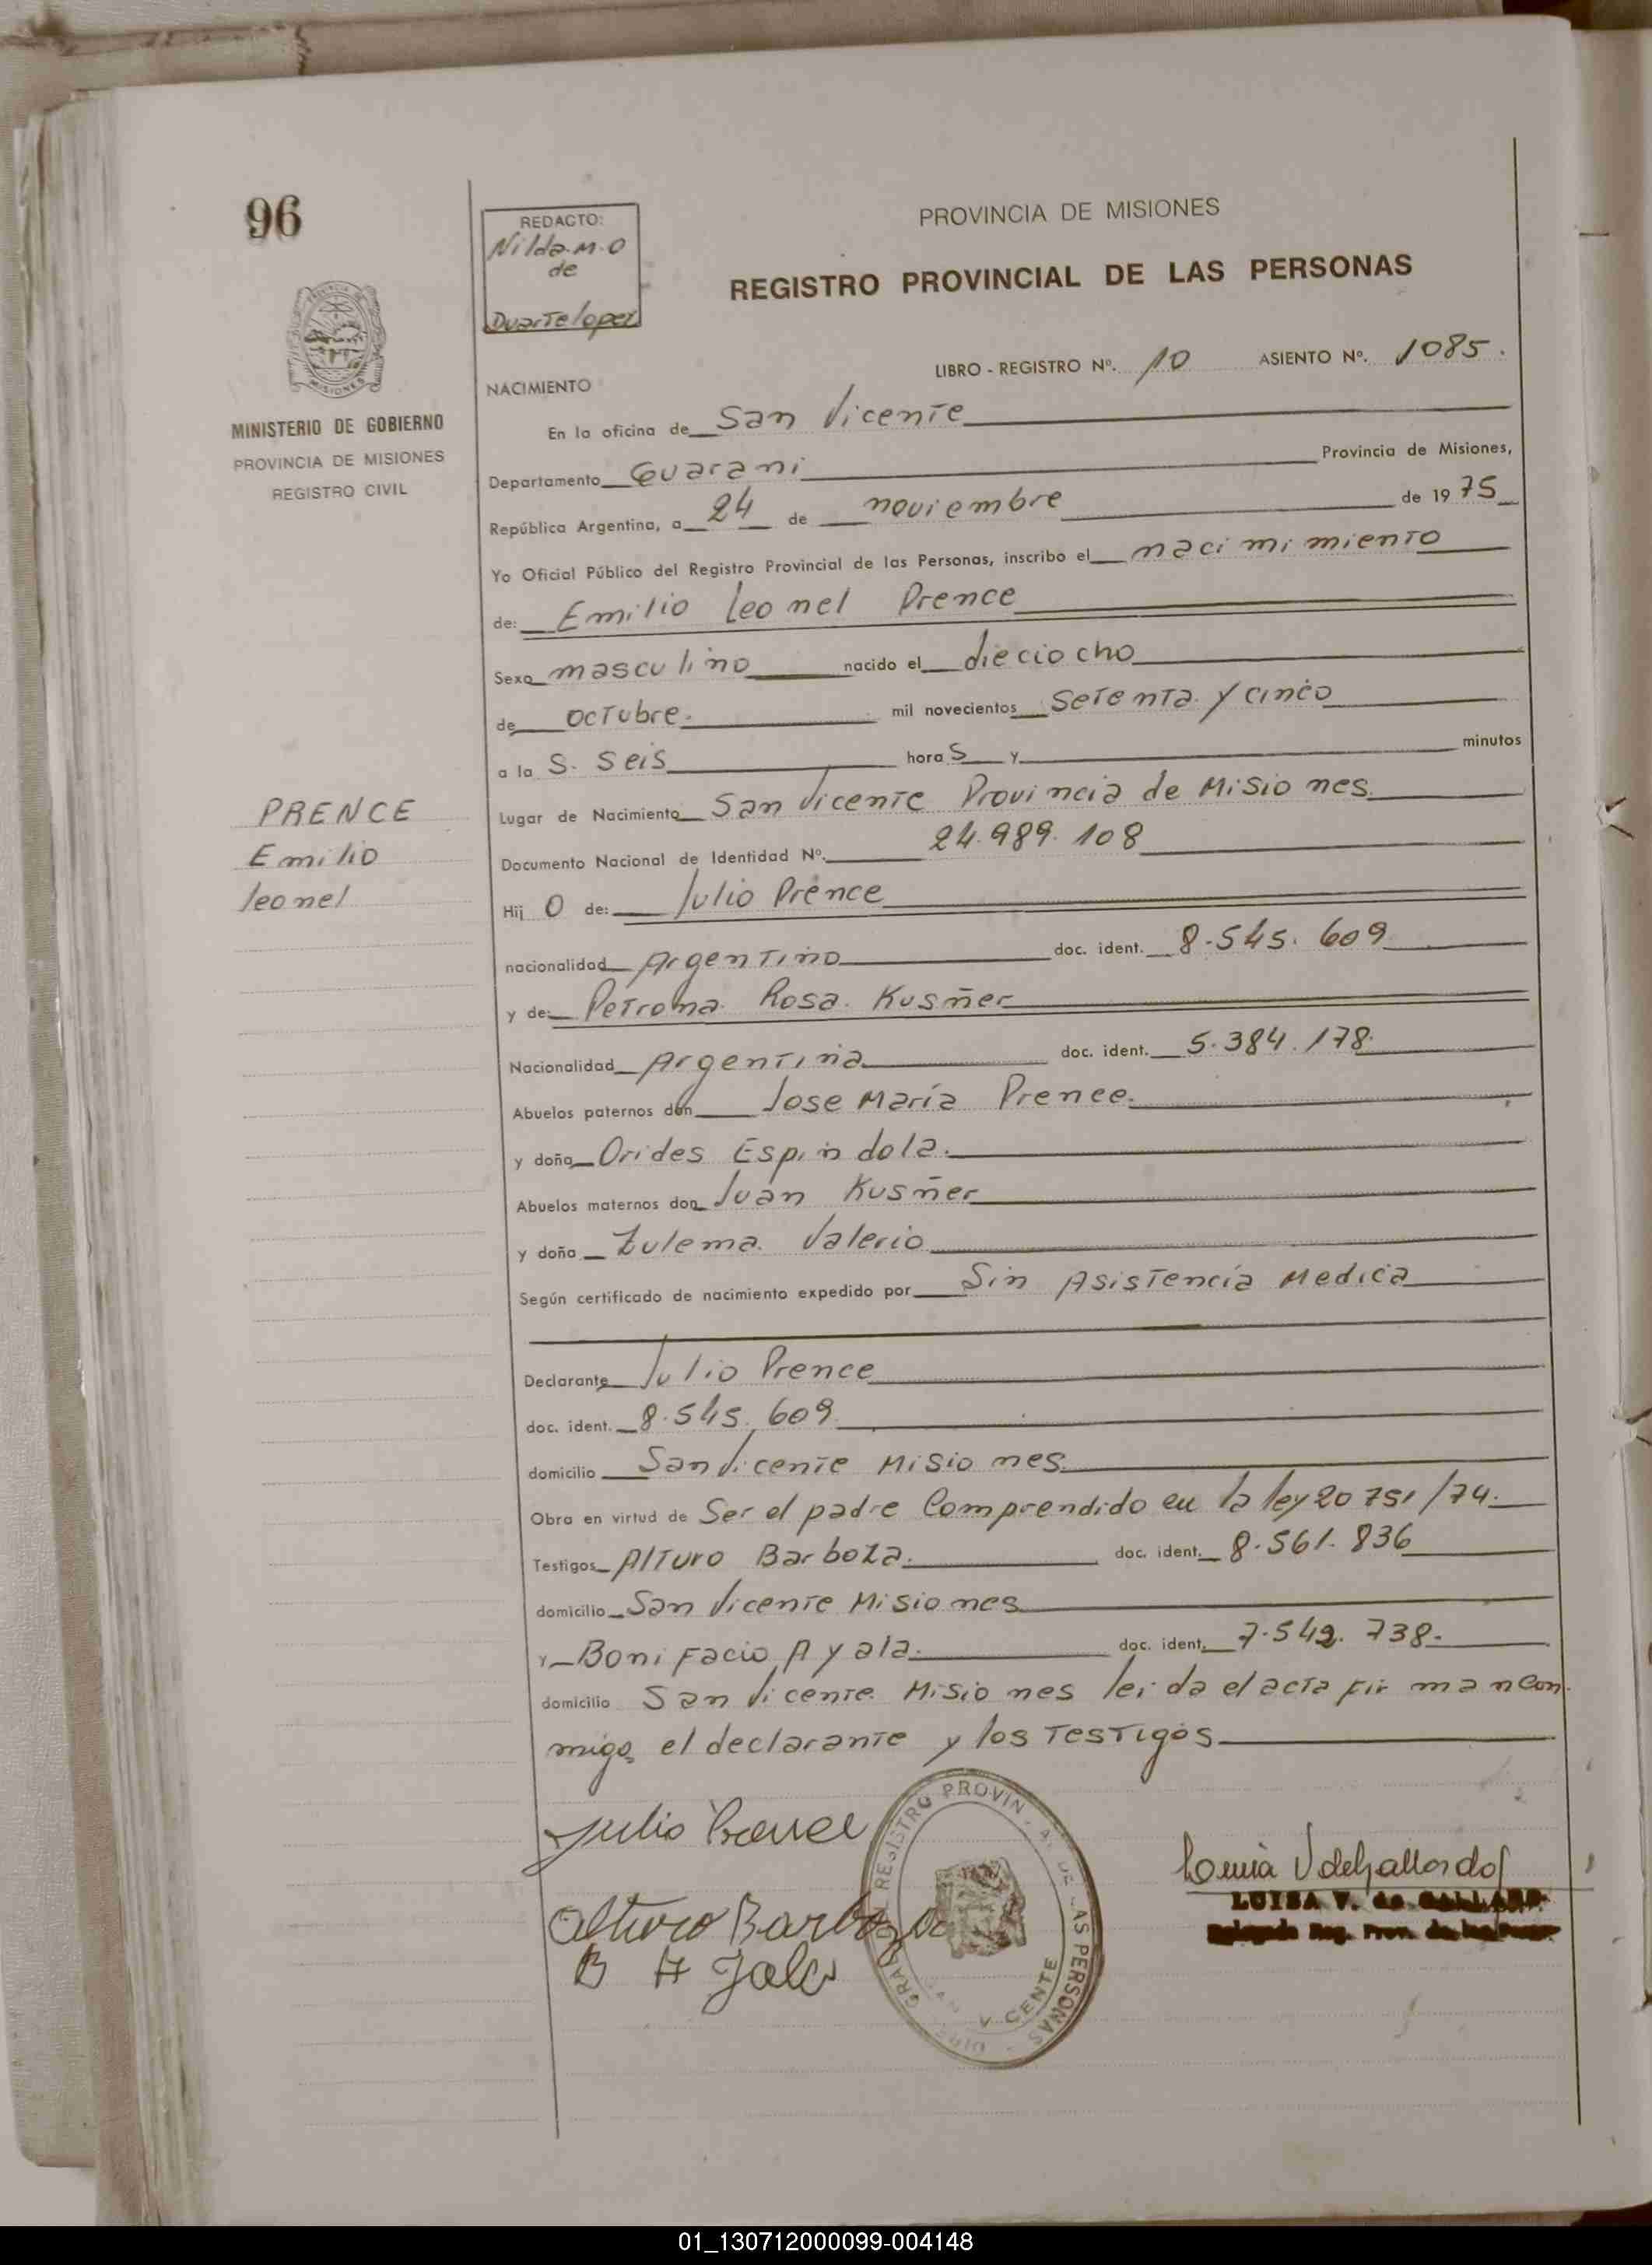 96
REDACTO:
Nilda.M.O
de
Duarte lopez
PROVINCIA DE MISIONES
REGISTRO PROVINCIAL DE LAS PERSONAS
MINISTERIO DE GOBIERNO
PROVINCIA DE MISIONES
REGISTRO CIVIL
LIBRO - REGISTRO Nº. 10 ASIENTO Nº. 1085.
NACIMIENTO
En la oficina de San Vicente
Departamento Guarani Provincia de Misiones,
República Argentina, a 24 de noviembre de 1975
Yo Oficial Público del Registro Provincial de las Personas, inscribo el nacimimiento
de: Emilio Leonel Prence
Sexo masculino nacido el dieciocho
de octubre. mil novecientos setenta y cinco
a la S. seis hora S y minutos
Lugar de Nacimiento San Vicente Provincia de Misiones.
PRENCE
Emilio
leonel
Documento Nacional de Identidad Nº. 24.989.108
Hij O de: Julio Prence
nacionalidad Argentino doc. ident. 8.545.609
y de: Petrona Rosa Kusñer
Nacionalidad Argentina doc. ident. 5.384.178.
Abuelos paternos don Jose María Prence.
y doña Orides Espindola.
Abuelos maternos don Juan Kusñer
y doña Zulema Valerio
Según certificado de nacimiento expedido por Sin Asistencía Medica
Declarante Julio Prence
doc. ident. 8.545.609
domicilio San Vicente Misiones
Obra en virtud de Ser el padre Comprendido en la ley 20 751/74.
Testigos Alturo Barboza. doc. ident. 8.561.836
domicilio San Vicente Misiones
y Bonifacio Ayala. doc. ident. 7.542.738.
domicilio San Vicente. Misiones leida el acta firman con
migo, el declarante y los testigos
Julio Prence
Alturo Barboza
B A Jala
REGISTRO PROVIN AS PERSONAS
VICENTE
Luisa V de Gallardo
LUISA V. de GALLARDO
01_130712000099-004148